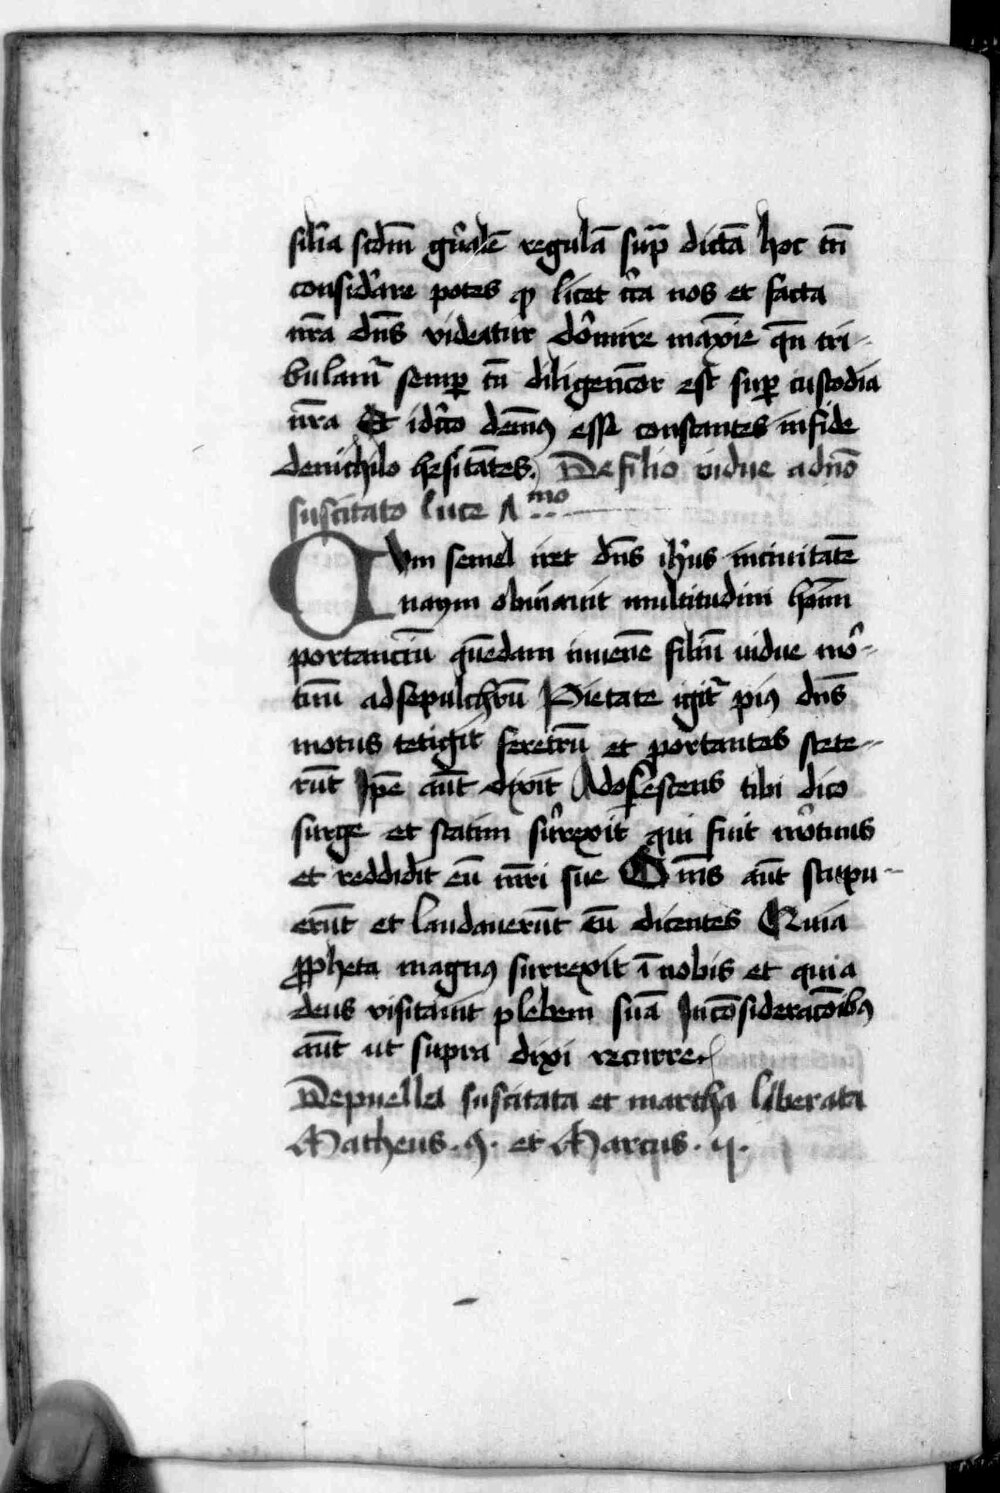 silia scdm gn̄alē regulā sup̄ dictā hoc tn̄
considare potes ꝙ licet c̄ca nos et facta
nr̄a dn̄s videatur dormire maxīe qn̄ tri-
bulamr semꝑ tn̄ diligenc̄or est suꝑ custodia
nr̄a Et idc̄co dem̄ꝰ esse constantes infide
denichilo hesitātes. De filio vidue a dn̄o
suscitato luce
Cvm semel iret dn̄s ih̄us inciuitatē
naym obuiauit multitudini hoīm
portanciū quēdam iuuenē filiū vidue mor-
tuū adsepulchrū Pietate igit̄ piꝰ dn̄s
motus tetigit feretrū et portantes stete-
rūt Ip̄e aūt dixit Adolescens tibi dico
surge et statim surrexit qui fuit mortuus
et reddidit eū mr̄i sue Om̄s aūt stupu-
erūt et laudauerūt eū dicentes Quia
ꝓpheta magnꝰ surrexit ī nobis et quia
deus visitauit plebem suā Incōsideracōibꝰ
aūt ut supra dixi recurre
De puella suscitata et martha liberata
Matheus . 9 . et Marcus .